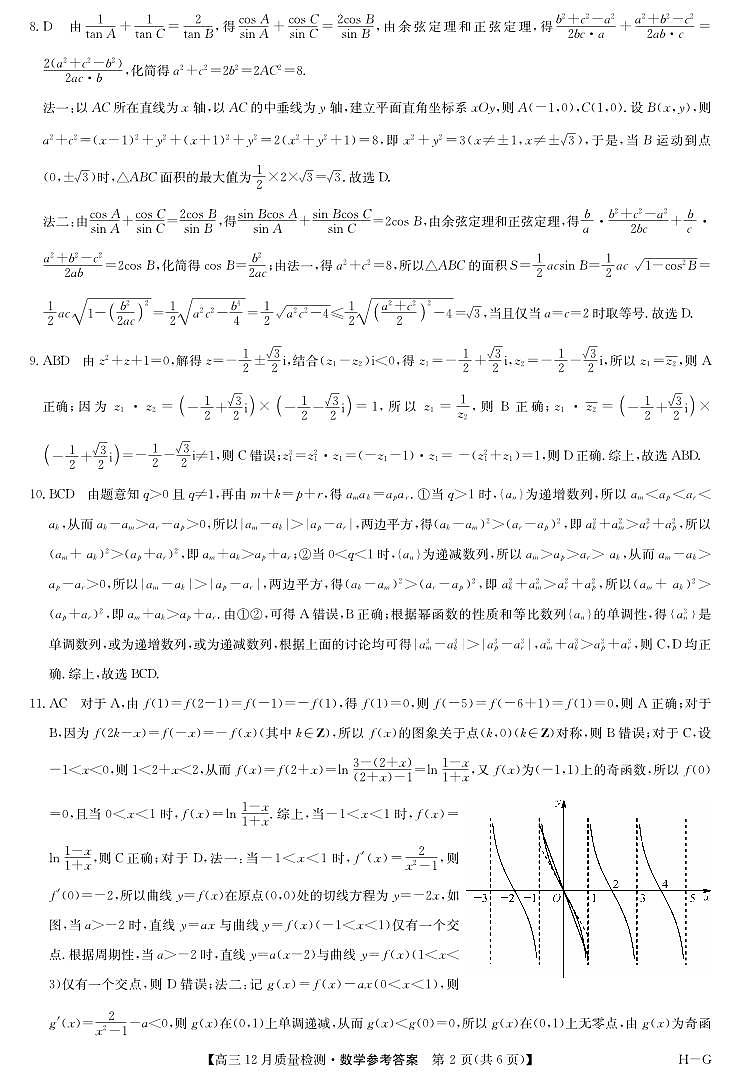 8. D 由 1/tan A + 1/tan C = 2/tan B, 得 cos A/sin A + cos C/sin C = 2cos B/sin B, 由余弦定理和正弦定理, 得 (b²+c²-a²)/(2bc·a) + (a²+b²-c²)/(2ab·c) =
2(a²+c²-b²)/(2ac·b), 化简得 a²+c²=2b²=2AC²=8.
法一:以 AC 所在直线为 x 轴,以 AC 的中垂线为 y 轴,建立平面直角坐标系 xOy,则 A(-1,0),C(1,0). 设 B(x,y),则
a²+c²=(x-1)²+y²+(x+1)²+y²=2(x²+y²+1)=8,即 x²+y²=3(x≠±1,x≠±√3),于是,当 B 运动到点
(0,±√3)时,△ABC 面积的最大值为 1/2×2×√3=√3. 故选 D.
法二:由 cos A/sin A + cos C/sin C = 2cos B/sin B, 得 sin Bcos A/sin A + sin Bcos C/sin C = 2cos B, 由余弦定理和正弦定理,得 b/a · (b²+c²-a²)/2bc + b/c ·
(a²+b²-c²)/2ab = 2cos B, 化简得 cos B = b²/2ac; 由法一,得 a²+c²=8,所以△ABC 的面积 S = 1/2 acsin B = 1/2 ac √(1-cos²B) =
1/2 ac√(1-(b²/2ac)²) = 1/2 √(a²c²-b⁴/4) = 1/2 √(a²c²-4) ≤ 1/2 √(((a²+c²)/2)²-4) = √3, 当且仅当 a=c=2 时取等号. 故选 D.
9. ABD 由 z²+z+1=0,解得 z=-1/2±√3/2 i,结合(z₁-z₂)i<0,得 z₁=-1/2+√3/2 i,z₂=-1/2-√3/2 i,所以 z₁=z̄₂,则 A
正确;因为 z₁·z₂=(-1/2+√3/2 i)×(-1/2-√3/2 i)=1,所以 z₁=1/z₂,则 B 正确;z₁·z̄₂=(-1/2+√3/2 i)×
(-1/2+√3/2 i)=-1/2-√3/2 i≠1,则 C 错误;z₁³=z₁²·z₁=(-z₁-1)·z₁=-(z₁²+z₁)=1,则 D 正确. 综上,故选 ABD.
10. BCD 由题意知 q>0 且 q≠1,再由 m+k=p+r,得 aₘaₖ=aₚaᵣ. ①当 q>1 时,{aₙ}为递增数列,所以 aₘ<aₚ<aᵣ<
aₖ,从而 aₖ-aₘ>aᵣ-aₚ>0,所以|aₘ-aₖ|>|aₚ-aᵣ|,两边平方,得(aₖ-aₘ)²>(aᵣ-aₚ)²,即 aₖ²+aₘ²>aᵣ²+aₚ²,所以
(aₘ+aₖ)²>(aₚ+aᵣ)²,即 aₘ+aₖ>aₚ+aᵣ;②当 0<q<1 时,{aₙ}为递减数列,所以 aₘ>aₚ>aᵣ>aₖ,从而 aₘ-aₖ>
aₚ-aᵣ>0,所以|aₘ-aₖ|>|aₚ-aᵣ|,两边平方,得(aₖ-aₘ)²>(aᵣ-aₚ)²,即 aₖ²+aₘ²>aᵣ²+aₚ²,所以(aₘ+aₖ)²>
(aₚ+aᵣ)²,即 aₘ+aₖ>aₚ+aᵣ. 由①②,可得 A 错误,B 正确;根据幂函数的性质和等比数列{aₙ}的单调性,得{aₙ³}是
单调数列,或为递增数列,或为递减数列,根据上面的讨论均可得|aₘ³-aₖ³|>|aₚ³-aᵣ³|,aₘ³+aₖ³>aₚ³+aᵣ³,则 C,D 均正
确. 综上,故选 BCD.
11. AC 对于 A,由 f(1)=f(2-1)=f(-1)=-f(1),得 f(1)=0,则 f(-5)=f(-6+1)=f(1)=0,则 A 正确;对于
B,因为 f(2k-x)=f(-x)=-f(x)(其中 k∈Z),所以 f(x)的图象关于点(k,0)(k∈Z)对称,则 B 错误;对于 C,设
-1<x<0,则 1<2+x<2,从而 f(x)=f(2+x)=ln (3-(2+x))/((2+x)-1)=ln (1-x)/(1+x),又 f(x)为(-1,1)上的奇函数,所以 f(0)
=0,且当 0<x<1 时,f(x)=ln (1-x)/(1+x). 综上,当-1<x<1 时,f(x)=
ln (1-x)/(1+x),则 C 正确;对于 D,法一:当-1<x<1 时,f′(x)=2/(x²-1),则
f′(0)=-2,所以曲线 y=f(x)在原点(0,0)处的切线方程为 y=-2x,如
图,当 a>-2 时,直线 y=ax 与曲线 y=f(x)(-1<x<1)仅有一个交
点. 根据周期性,当 a>-2 时,直线 y=a(x-2)与曲线 y=f(x)(1<x<
3)仅有一个交点,则 D 错误;法二:记 g(x)=f(x)-ax(0<x<1),则
y
-3 -2 -1 O 1 2 3 4 5 x
g′(x)=2/(x²-1)-a<0,则 g(x)在(0,1)上单调递减,从而 g(x)<g(0)=0,所以 g(x)在(0,1)上无零点,由 g(x)为奇函
【高三 12 月质量检测·数学参考答案 第 2 页(共 6 页)】 H-G